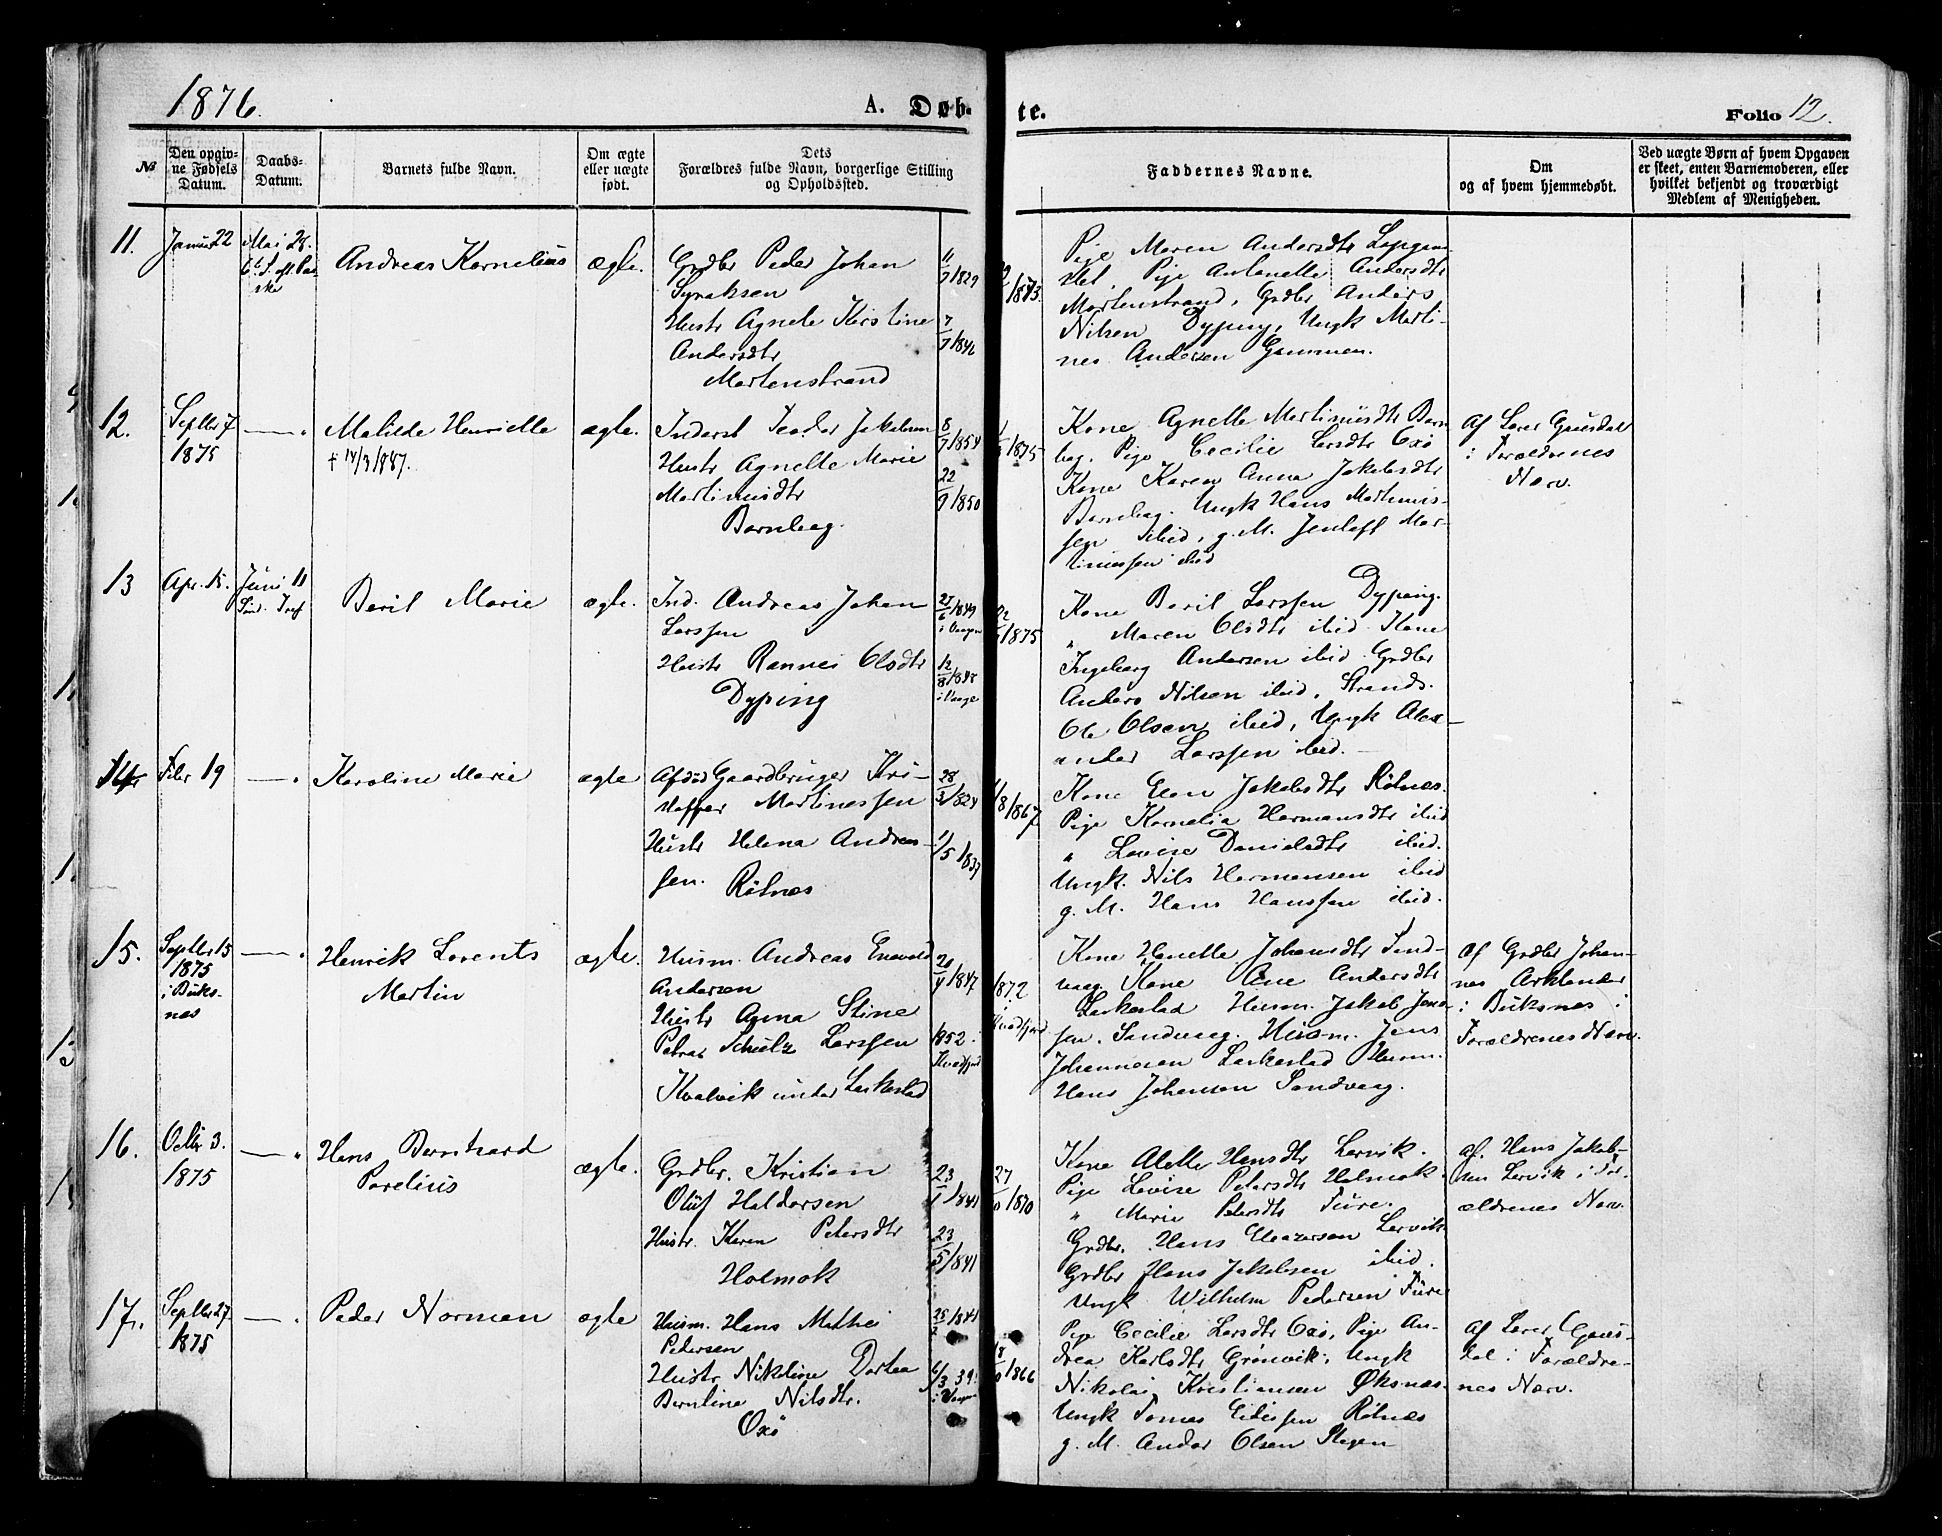 1876.
A. Døb-
te.
Folio 12.
№
Den opgiv-
ne Fødsels
Datum.
Daabs-
Datum.
Barnets fulde Navn.
Om ægte
eller uægte
født.
Dets
Forældres fulde Navn, borgerlige Stilling
og Opholdssted.
Faddernes Navne.
Om
og af hvem hjemmedøbt.
Ved uægte Børn af hvem Opgaven
er skeet, enten Barnemoderen, eller
hvilket bekjendt og troværdigt
Medlem af Menigheden.
11.
Januar 22
Mai 28.
Andreas Kornelius
ægte.
Grdbr Peder Johan
Syraksen
Hustr Agnete Kirstine
Andersdtr
Mortenstrand
11/7 1829
7/7 1846
/1873.
Pige Maren Andersdtr
Pige Antonette Andersdtr
Mortenstrand, Grdbr Anders
Nilsen Dyping, Ungk Marti-
nes Andersen Gammen.
12.
Septbr 7
1875
—
Matilde Henriette
† 14/3 1887.
ægte.
Inderst Teodor Jakobsen
Hustr Agnette Marie
Martinusdtr
Bornhaag.
8/7 1854
22/9 1850
/1875
Kone Agnette Martinusdtr
Pige Cecilie Larsdtr Oxø
Kone Karen Anna Jakobsdtr
Ungk Hans Martinus-
sen ibid, g. M. Jentoft Mar-
tinussen ibid
Af Lærer Gausdal
i Forældrenes
Nærv.
13
Apr. 15.
Juni 11
Berit Marie
ægte.
Ind. Andreas Johan
Larssen
Hustr Rannei Olsdtr
Dyping
/1849
12/8 1848
22/ 1875
Kone Berit Larssen Dyping.
" Maren Olsdtr ibid Kone
Ingeborg Andersen ibid Grdbr
Anders Nilsen ibid, Strands.
Ole Olsen ibid, Ungk Alex-
ander Larssen ibid.
14
Febr 19
—
Karoline Marie
ægte
Afdød Gaardbruger Kri-
stoffer Martinessen
Hustr Helena Andreas-
sen. Røtnes
28/3 1824
1/5 1837
/8 1867
Kone Elen Jakobsdtr Røtnes.
Pige Kornelia Hermansdtr ibid
" Lovise Danielsdtr ibid.
Ungk. Nils Hermansen ibid
g. M. Hans Hanssen ibid.
15.
Septbr 15
1875
i Buks-
nes
—
Henrik Lorents
Martin
ægte.
Husm. Andreas Enevold
Andersen
Hustr Anna Stine
Petra Schulz Larssen
Kvalvik under Leikestad
20/4 1847
1852 i
1872
Kone Hanette Johansdtr Sand-
vaag Kone Ane Andersdtr
Leikestad Husm. Jakob Jens-
sen, Sandvaag. Husm. Jens
Johannesen Leikestad Husm.
Hans Johansen Sandvaag.
Af Grdbr Johan-
nes Arntander
i Buksnes i
Forældrenes Nærv.
16.
Octbr 3.
1875
—
Hans Bernthard
Parelius
ægte.
Grdbr. Kristian
Oluf Haldorsen
Hustr. Karen Petersdtr
Holmak
23/1 1841
23/5 1841
27/ 1870
Kone Alette Hansdtr Lervik.
Pige Lovise Petersdtr Holmak
" Marie Petersdtr Fure.
Grdbr. Hans Eleazersen Lervik
Grdbr Hans Jakobsen ibid.
Ungk Wilhelm Pedersen Fure
Af. Hans Jakob-
sen Lervik i For-
ældrenes Nærv.
17.
Septbr 27.
1875
—
Peder Norman
ægte
Husm. Hans Mathei
Pedersen
Hustr Nikoline Dortea
Berntine Nilsdtr.
Oxø
25/2 1841
6/3 39.
/1866
Pige Cecilie Larsdtr Oxø, Pige An-
drea Karlsdtr Grønvik, Ungk
Nikolai Kristiansen Øksnes
Ungk Tomas Eidissen Røtnes
g. M. Andor Olsen Stegen
Af Lærer Gaus-
dal i Forældre-
nes Nærv.